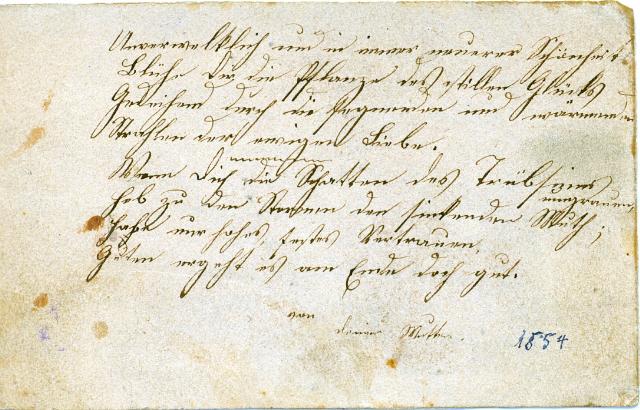 Unverwelklich und in immer neuerer Schönheit
Blühe Dir die Pflanze des stillen Glücks
Gedeihend durch die segnenden und wärmenden
Strahlen der ewigen Liebe.
Wenn Dich die Schatten des Trübsinns
umgrauen,
heb zu den Sternen den sinkenden Muth;
habe nur hohes, festes Vertrauen,
Guten ergeht es am Ende doch gut.
von
deiner Mutter.
1854